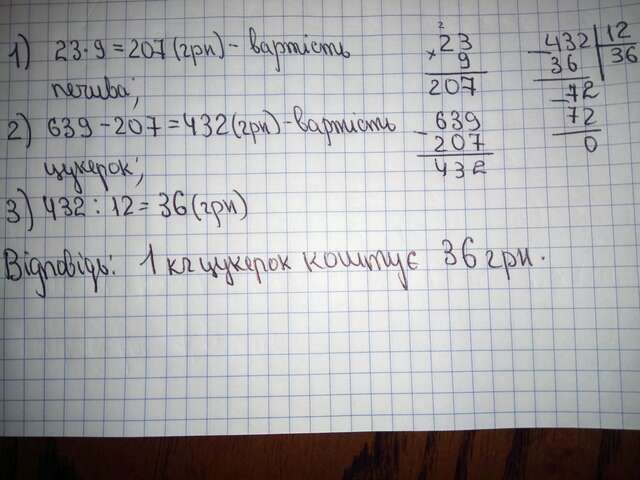 1) 23·9=207(грн)-вартість
печива;
2) 639-207=432(грн)-вартість
цукерок;
3) 432:12=36(грн)
Відповідь: 1 кг цукерок коштує 36 грн.
2
23
× 9
207
- 639
207
432
- 432 12
36 36
- 72
72
0